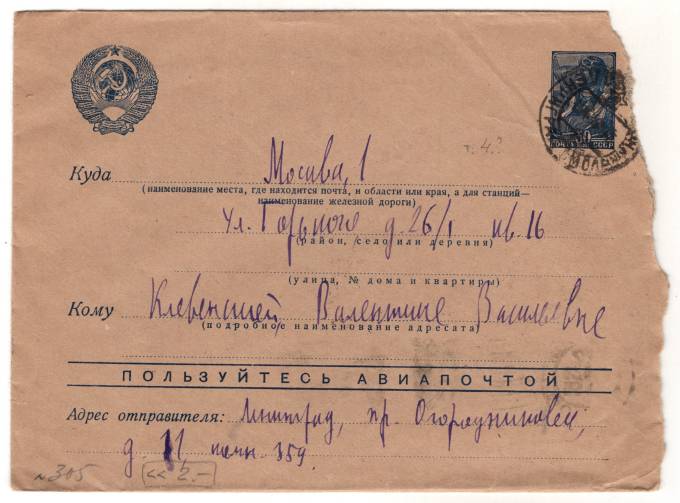 т. 4.?
Куда Москва, 1
(наименование места, где находится почта, и области или края, а для станций—
наименование железной дороги)
ул. Горького д. 26/1 кв. 16
(район, село или деревня)
(улица, № дома и квартиры)
Кому Валентине Васильевне
(подробное наименование адресата)
ПОЛЬЗУЙТЕСЬ АВИАПОЧТОЙ
Адрес отправителя: Ленинград, пр. Огородникова,
д. 11, комн. 359.
№305 << 2.-